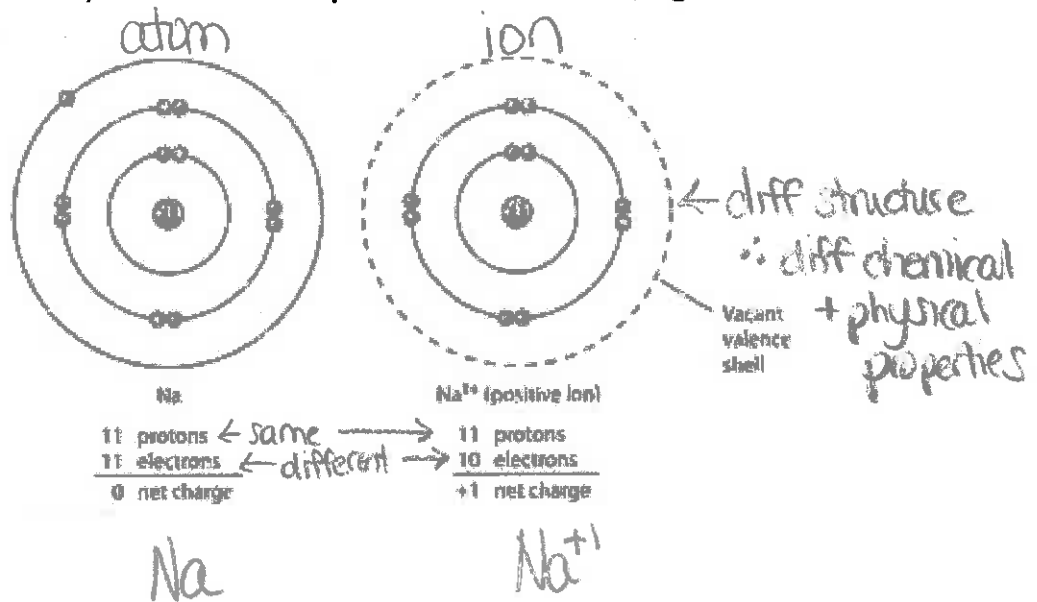 atom
ion
← diff structure
∴ diff chemical
+ physical
properties
Vacant
valence
shell
Na
Na¹⁺ (positive ion)
11 protons ← same → 11 protons
11 electrons ← different → 10 electrons
0 net charge
+1 net charge
Na
Na⁺¹